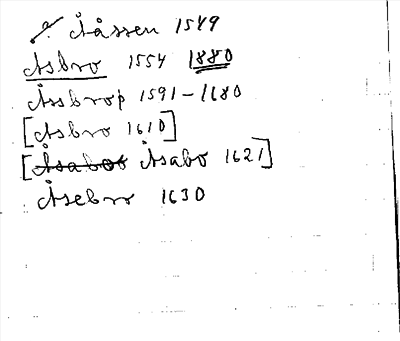 Åjåssen 1549
Åsbro 1554 1880
Åssbrop 1591-1680
[Åsbro 1610]
[Åsabo 1621]
Åsebro 1630